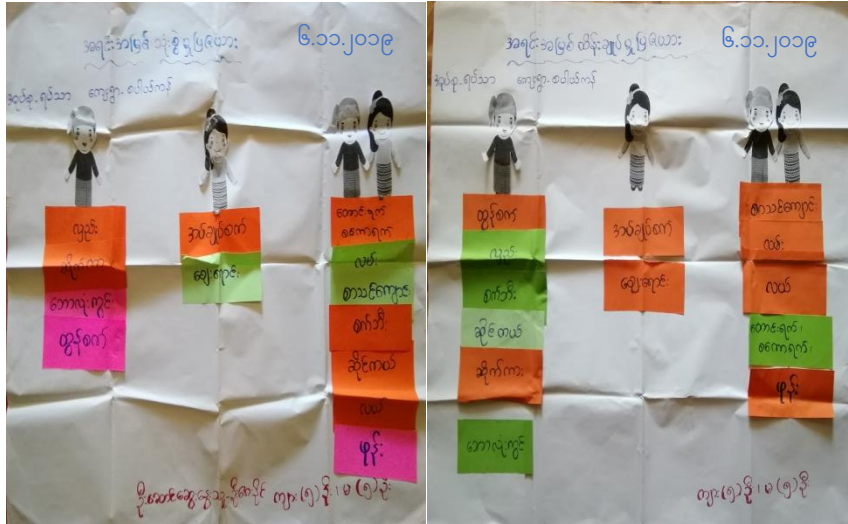 အရင်းအမြစ် သုံးစွဲမှုပြဇယား
၆.၁၁.၂၀၁၉
အုပ်စု.ရပ်သာ ကျေးရွာ.စပါယ်ကန်
လှည်း
ဆိုက်ကား
ဘောလုံးကွင်း
ထွန်စက်
အပ်ချုပ်စက်
ဈေးရောင်း
တောင်းရက်
စကောရက်
လမ်း
စာသင်ကျောင်း
စက်ဘီး
ဆိုင်ကယ်
လယ်
ဖုန်း
ကျား(၅)ဦး၊ မ(၅)ဦး
အရင်းအမြစ် ထိန်းချုပ်မှုပြဇယား
၆.၁၁.၂၀၁၉
အုပ်စု.ရပ်သာ ကျေးရွာ.စပါယ်ကန်
ထွန်စက်
လှည်း
စက်ဘီး
ဆိုင်ကယ်
ဆိုက်ကား
ဘောလုံးကွင်း
အပ်ချုပ်စက်
ဈေးရောင်း
စာသင်ကျောင်း
လမ်း
လယ်
တောင်းရက်၊
စကောရက်၊
ဖုန်း
ကျား(၅)ဦး၊ မ(၅)ဦး